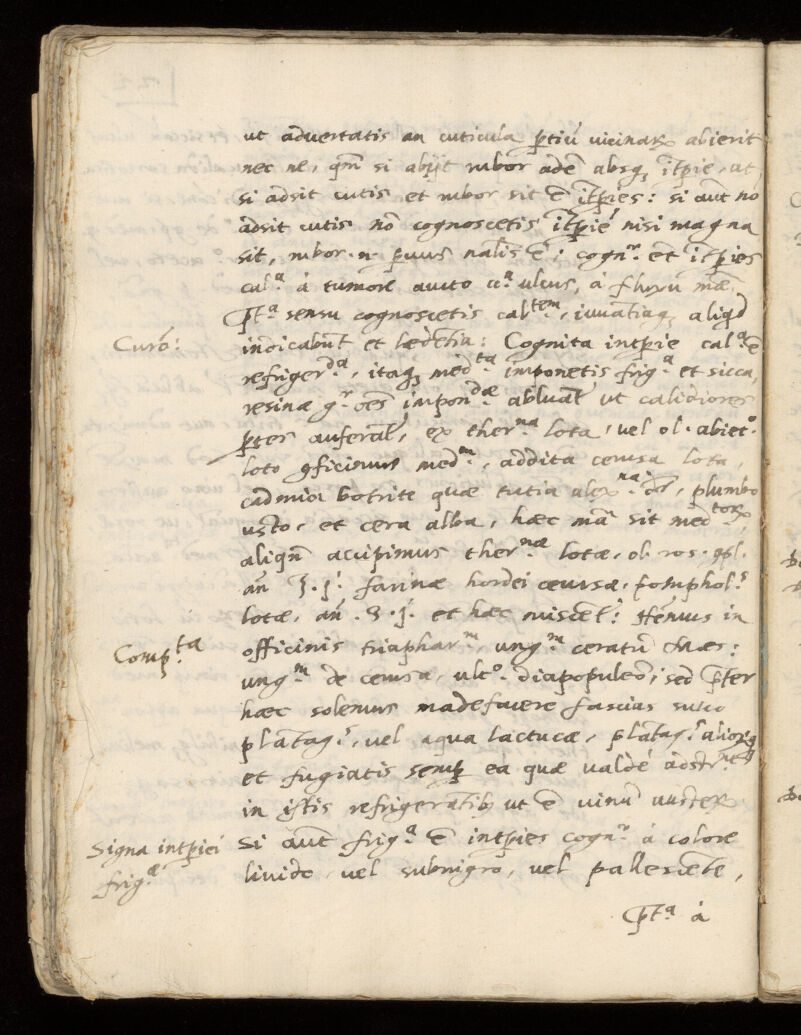 ut advertatis an cuticula ꝑtiũ vicinarꝝ abierit
nec ne, qm̃ si abijt rubor adẽ absqꝫ itp̃ie, at
si adsit cutis et rubor sit ẽ itp̃ies: si aut̃ nõ
adsit cutis nõ cognoscetis itp̃iẽ nisi magna
sit, rubor .n. ꝑvus nalis ẽ; cogn.ʳ et̃ itp̃ies
cal.ª á tumore aucto c.ª ulcus, á fluxu mãe.
Pt̃.ª sensu cognoscetis calᵗᵉᵐ, iuuãtiaqꝫ aliqd
Curõ:
indicabũt et lædẽtia: Cognita intp̃ie cal.ª ẽ
refrigerᵈª, itaqꝫ medᵗª imponetis frig.ª et sicca,
resinæ g.ʳ oẽs imponᵈæ abluãt ut calidiorẽs
ꝑtes auferãt, ex therⁿª lota, vel ol. abiet.º
loto ꝯficimus medᵐ, addita cerusa lota,
cadmia botrite quæ tutia alexⁿª dr̃, plumbo
usto, et cera alba, hæc mã sit medᵗᵒʳꝝ,
aliqñ accipimus therⁿæ lotæ, ol. ros. ꝯpl.
añ ʒ.j. farinæ hordei cerusæ. pomphol.ˢ
lotæ, añ .ʒ.j. et hæc miscẽt: Hẽmus in
Comp.ᵗª
officinis triapharᵐ, ung.ᵐ ceratũ
ung.ᵐ de cerusa, ulto. diapopuleõ; sed p̃ter
hæc solemus madefacere fascias succo
plãtag.ˢ, vel aqua lactucæ, plãtag.ˢ aliorꝝqꝫ
et fugiatis semꝑ ea quæ valdé
in istis refrigerãtibꝫ ut ẽ vinũ
Signa intp̃iei
frig.æ
Si aut̃ frig.ª ẽ intp̃ies cogn.ʳ á colore
livido vel subnigro, vel pallescẽte,
Pt̃.ª á